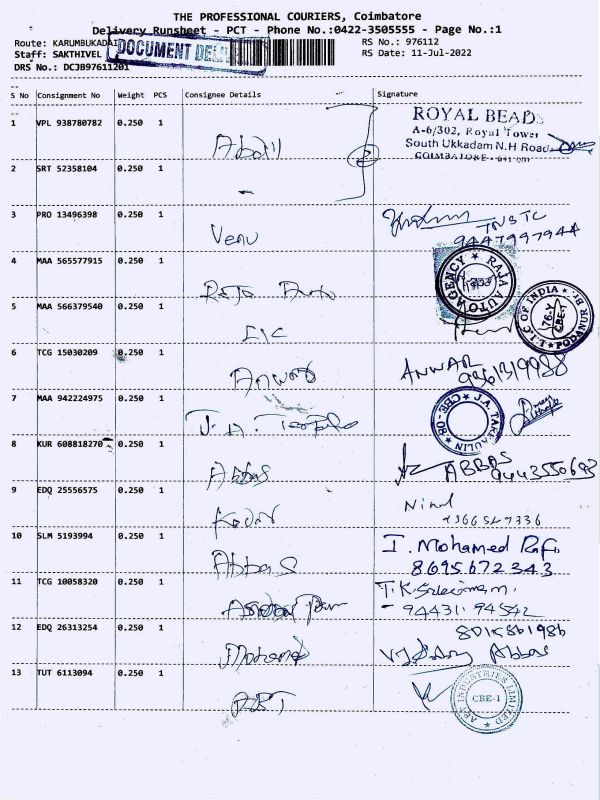 THE PROFESSIONAL COURIERS, Coimbatore
Delivery Runsheet - PCT - Phone No.:0422-3505555 - Page No.:1
Route: KARUMBUKADAI
RS No.: 976112
Staff: SAKTHIVEL
RS Date: 11-Jul-2022
DOCUMENT
DRS No.: DCJB97611201
S No Consignment No Weight PCS Consignee Details Signature
1 VPL 938780782 0.250 1
ROYAL BEADS
A-6/302, Royal Tower
South Ukkadam N.H Road
COIMBATORE
2 SRT 52358104 0.250 1
3 PRO 13496398 0.250 1 Venu
TNSTC
9447997944
4 MAA 565577915 0.250 1 Raja Auto
RAJA AUTO AGENCY
5 MAA 566379540 0.250 1 LIC
L.I.C OF INDIA
CBE-1
PODANUR BR.
6 TCG 15030209 0.250 1 Anwar
ANWAR
7 MAA 942224975 0.250 1
J.A. TARPAULIN
CBE-08
8 KUR 608818270 0.250 1 Abbas
ABBAS
9443550693
9 EDQ 25556575 0.250 1
10 SLM 5193994 0.250 1 Abbas
I. Mohamed Rafi
8695672343
11 TCG 10058320 0.250 1
94431 94542
12 EDQ 26313254 0.250 1
Abbas
13 TUT 6113094 0.250 1
INDUSTRIES LIMITED
CBE-1